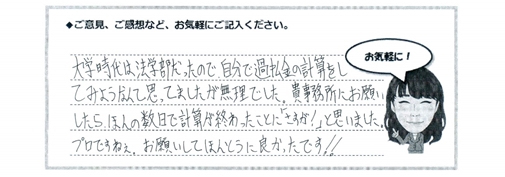 ◆ご意見、ご感想など、お気軽にご記入ください。
お気軽に！
大学時代は法学部だったので、自分で過払金の計算をし
てみようなんて思ってましたが無理でした。貴事務所にお願い
したら、ほんの数日で計算が終わったことに「さすが！」と思いました。
プロですねぇ。お願いしてほんとうに良かったです!!